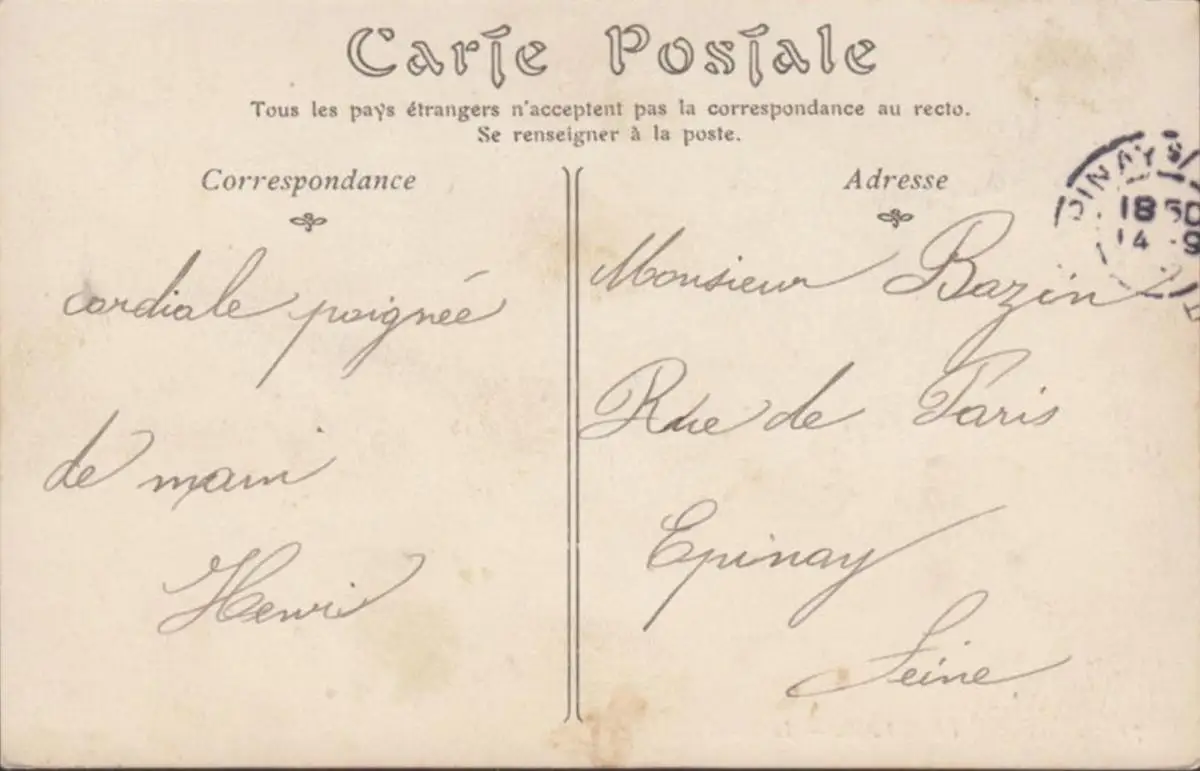 Carte Postale
Tous les pays étrangers n'acceptent pas la correspondance au recto.
Se renseigner à la poste.
Correspondance
cordiale poignée
de main
Henri
Adresse
Monsieur Bazin
Rue de Paris
Epinay
Seine
PINAY S/
18 50
14 -9